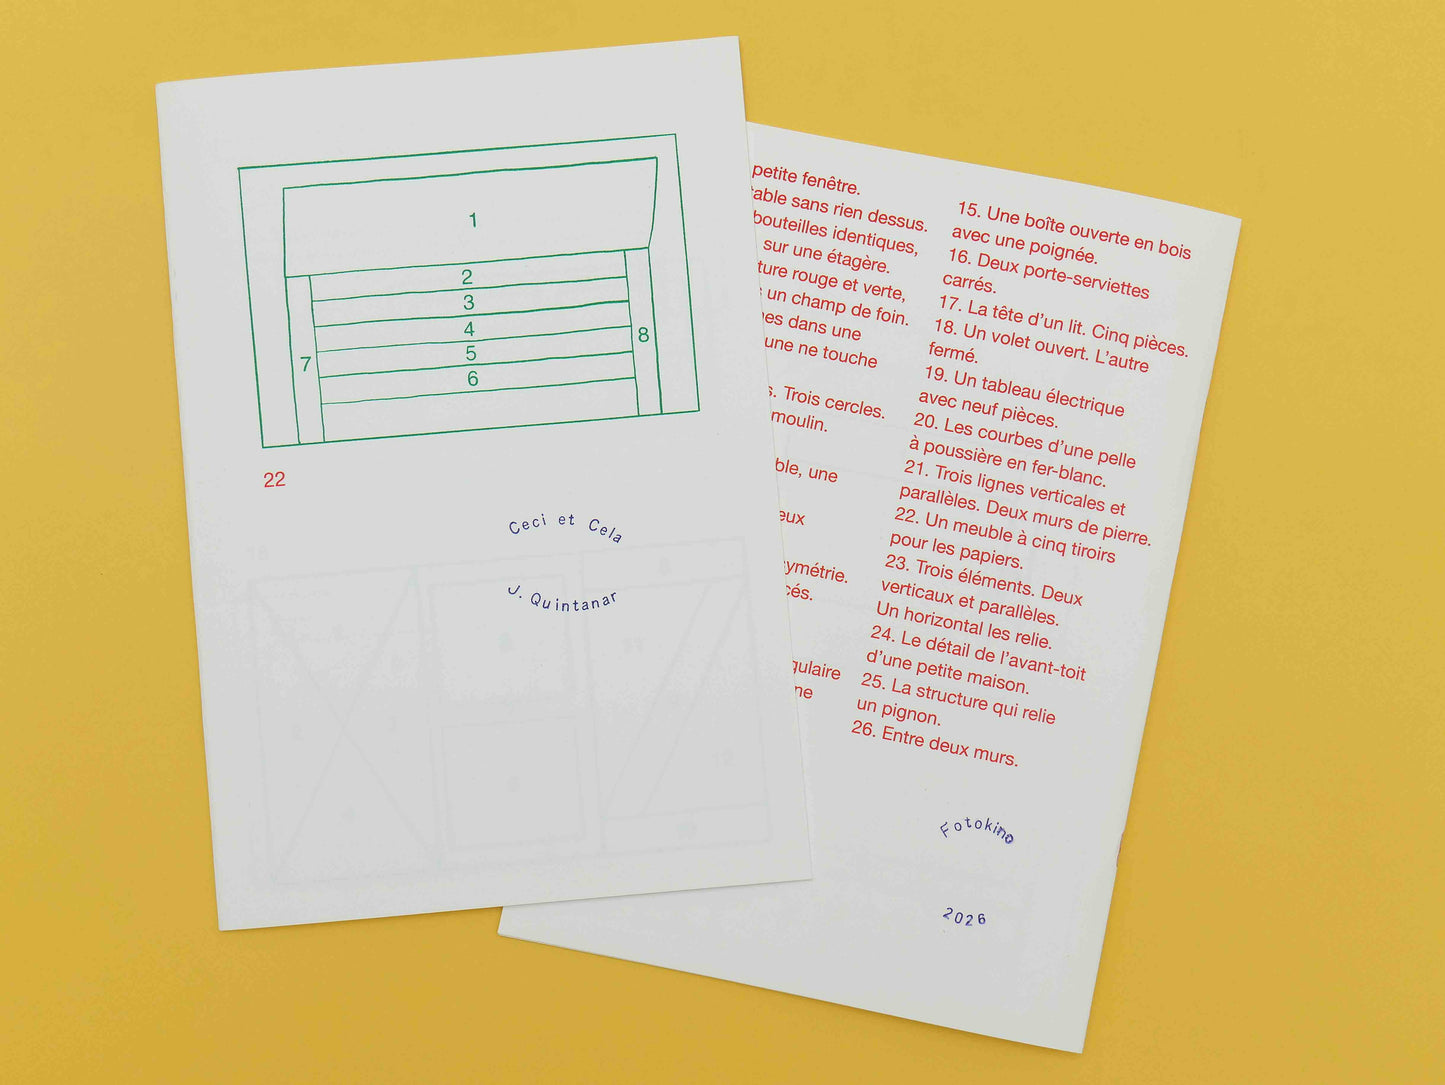 1
2
3
4
5
6
7
8
22
Ceci et Cela
J. Quintanar
petite fenêtre.
table sans rien dessus.
bouteilles identiques,
sur une étagère.
rouge et verte,
un champ de foin.
dans une
une ne touche
Trois cercles.
moulin.
une
15. Une boîte ouverte en bois
avec une poignée.
16. Deux porte-serviettes
carrés.
17. La tête d'un lit. Cinq pièces.
18. Un volet ouvert. L'autre
fermé.
19. Un tableau électrique
avec neuf pièces.
20. Les courbes d'une pelle
à poussière en fer-blanc.
21. Trois lignes verticales et
parallèles. Deux murs de pierre.
22. Un meuble à cinq tiroirs
pour les papiers.
23. Trois éléments. Deux
verticaux et parallèles.
Un horizontal les relie.
24. Le détail de l'avant-toit
d'une petite maison.
25. La structure qui relie
un pignon.
26. Entre deux murs.
Fotokino
2026